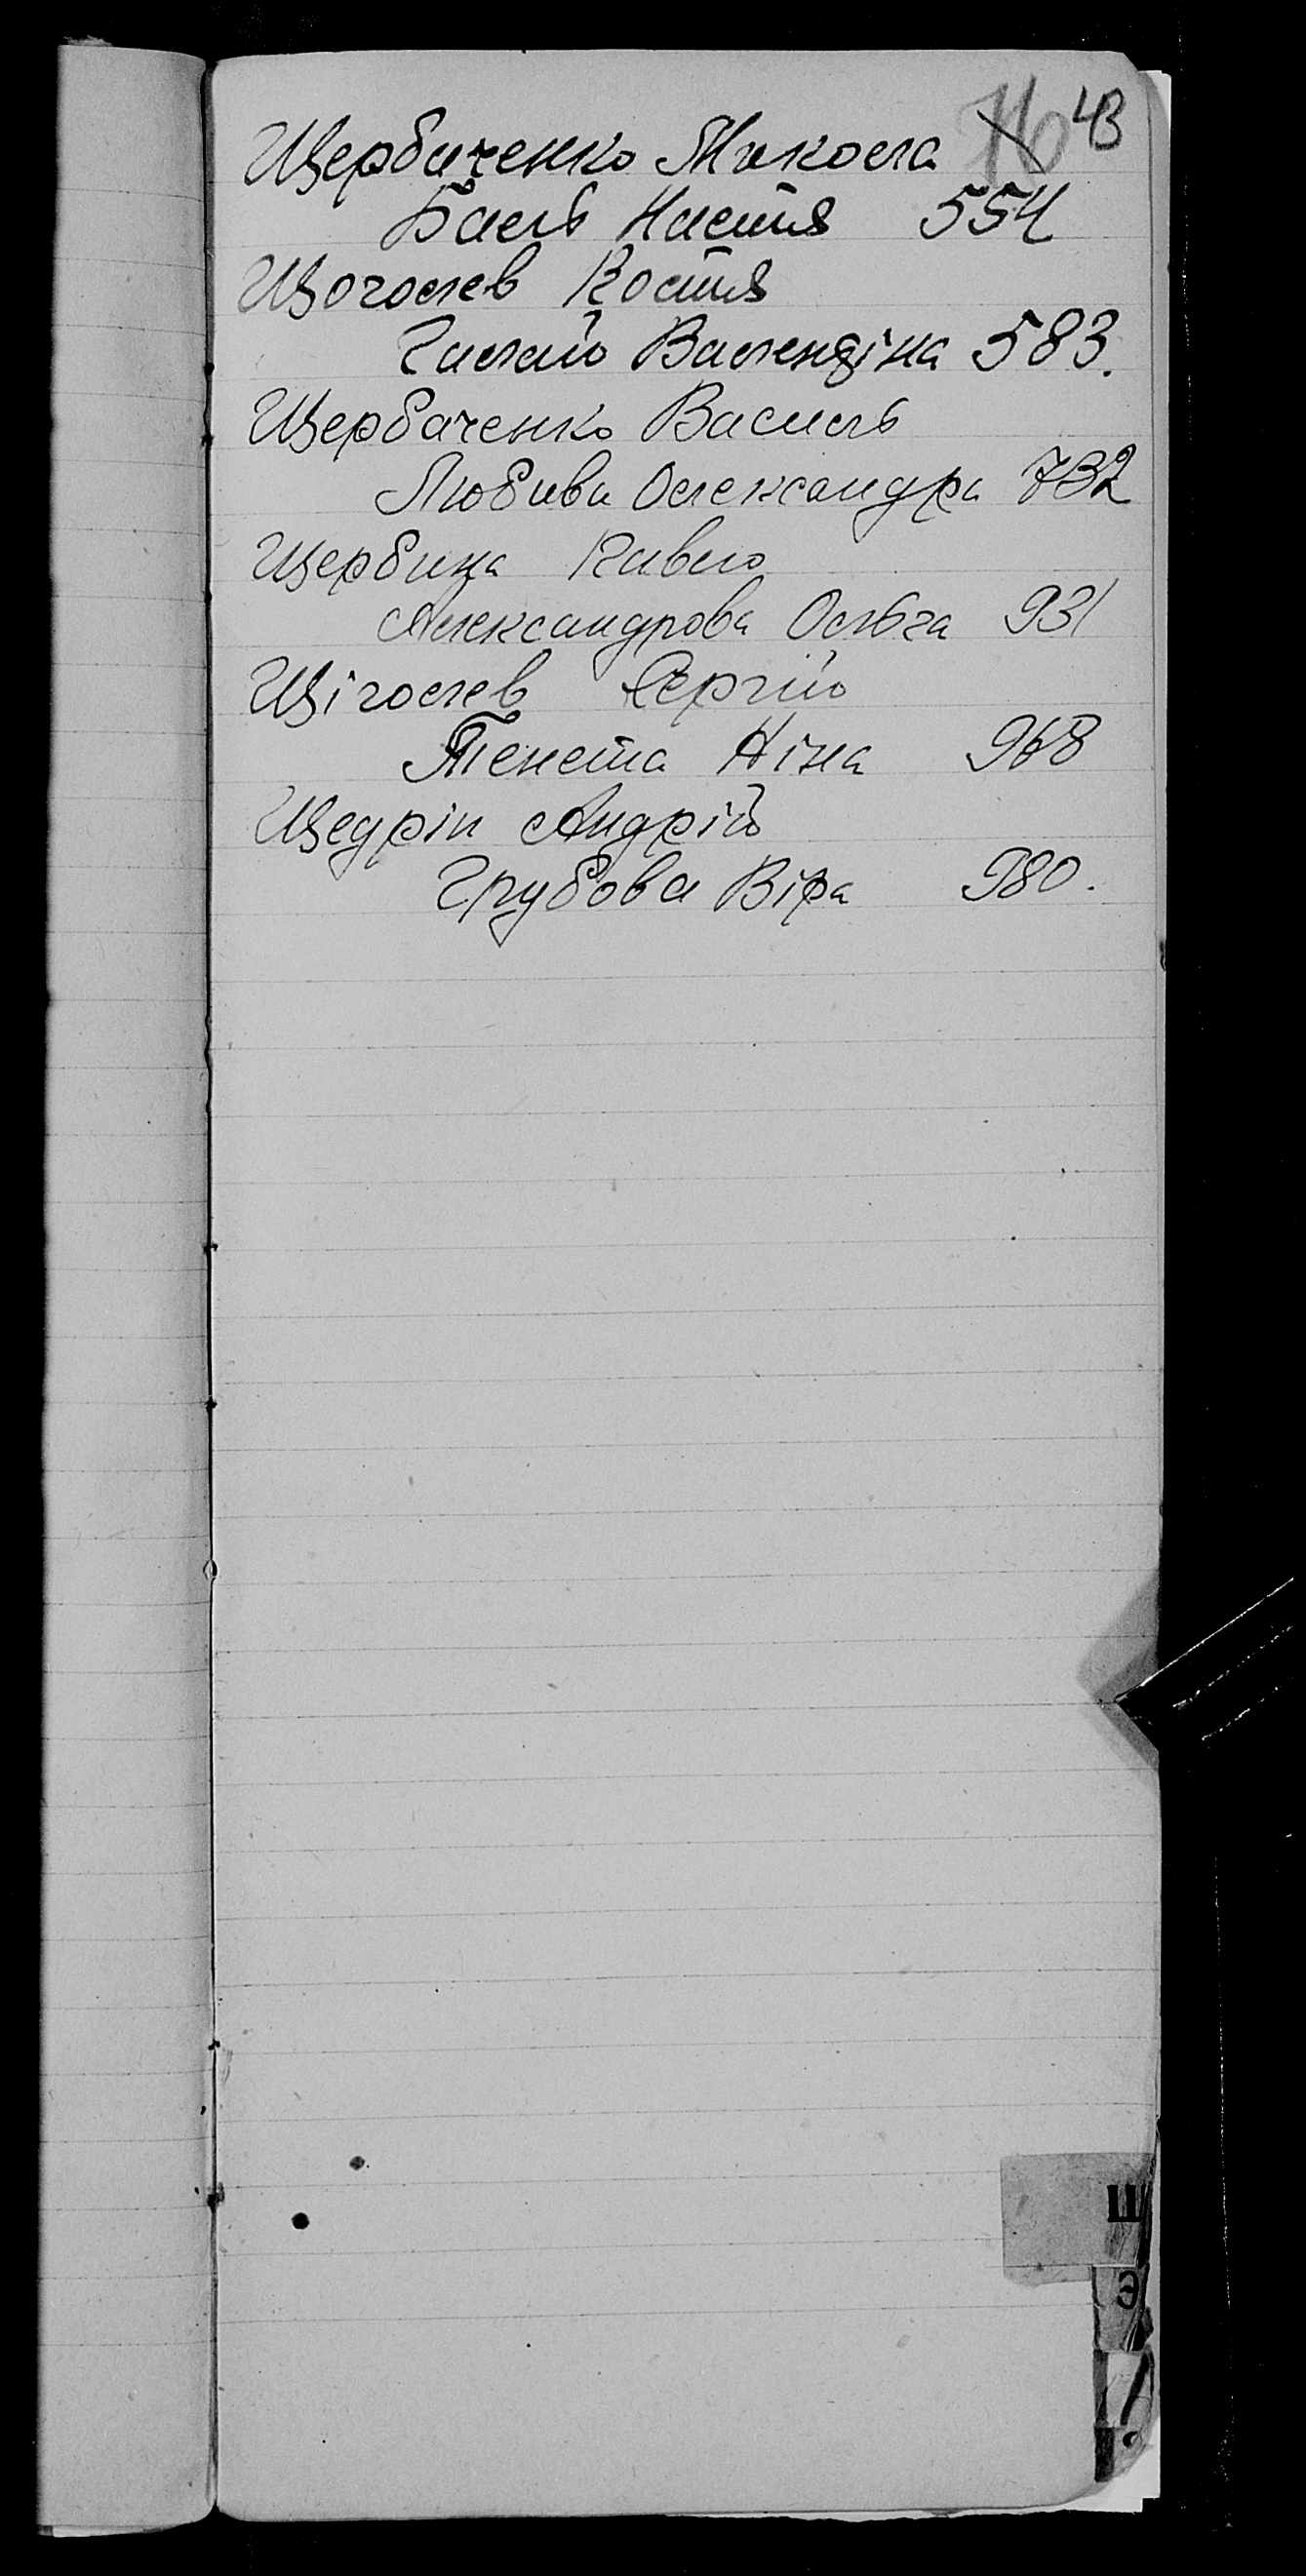 43
Щербаченко Микола
Баль Настя 554
Щоголев Костя
Галай Валендіна 583.
Щербаченко Василь
Любива Олександра 732
Щербина Павло
Александрова Ольга 931
Щіголев Сергій
Тенета Ніна 968
Щедрін Андрій
Грубова Віра 980.
Щ
Э